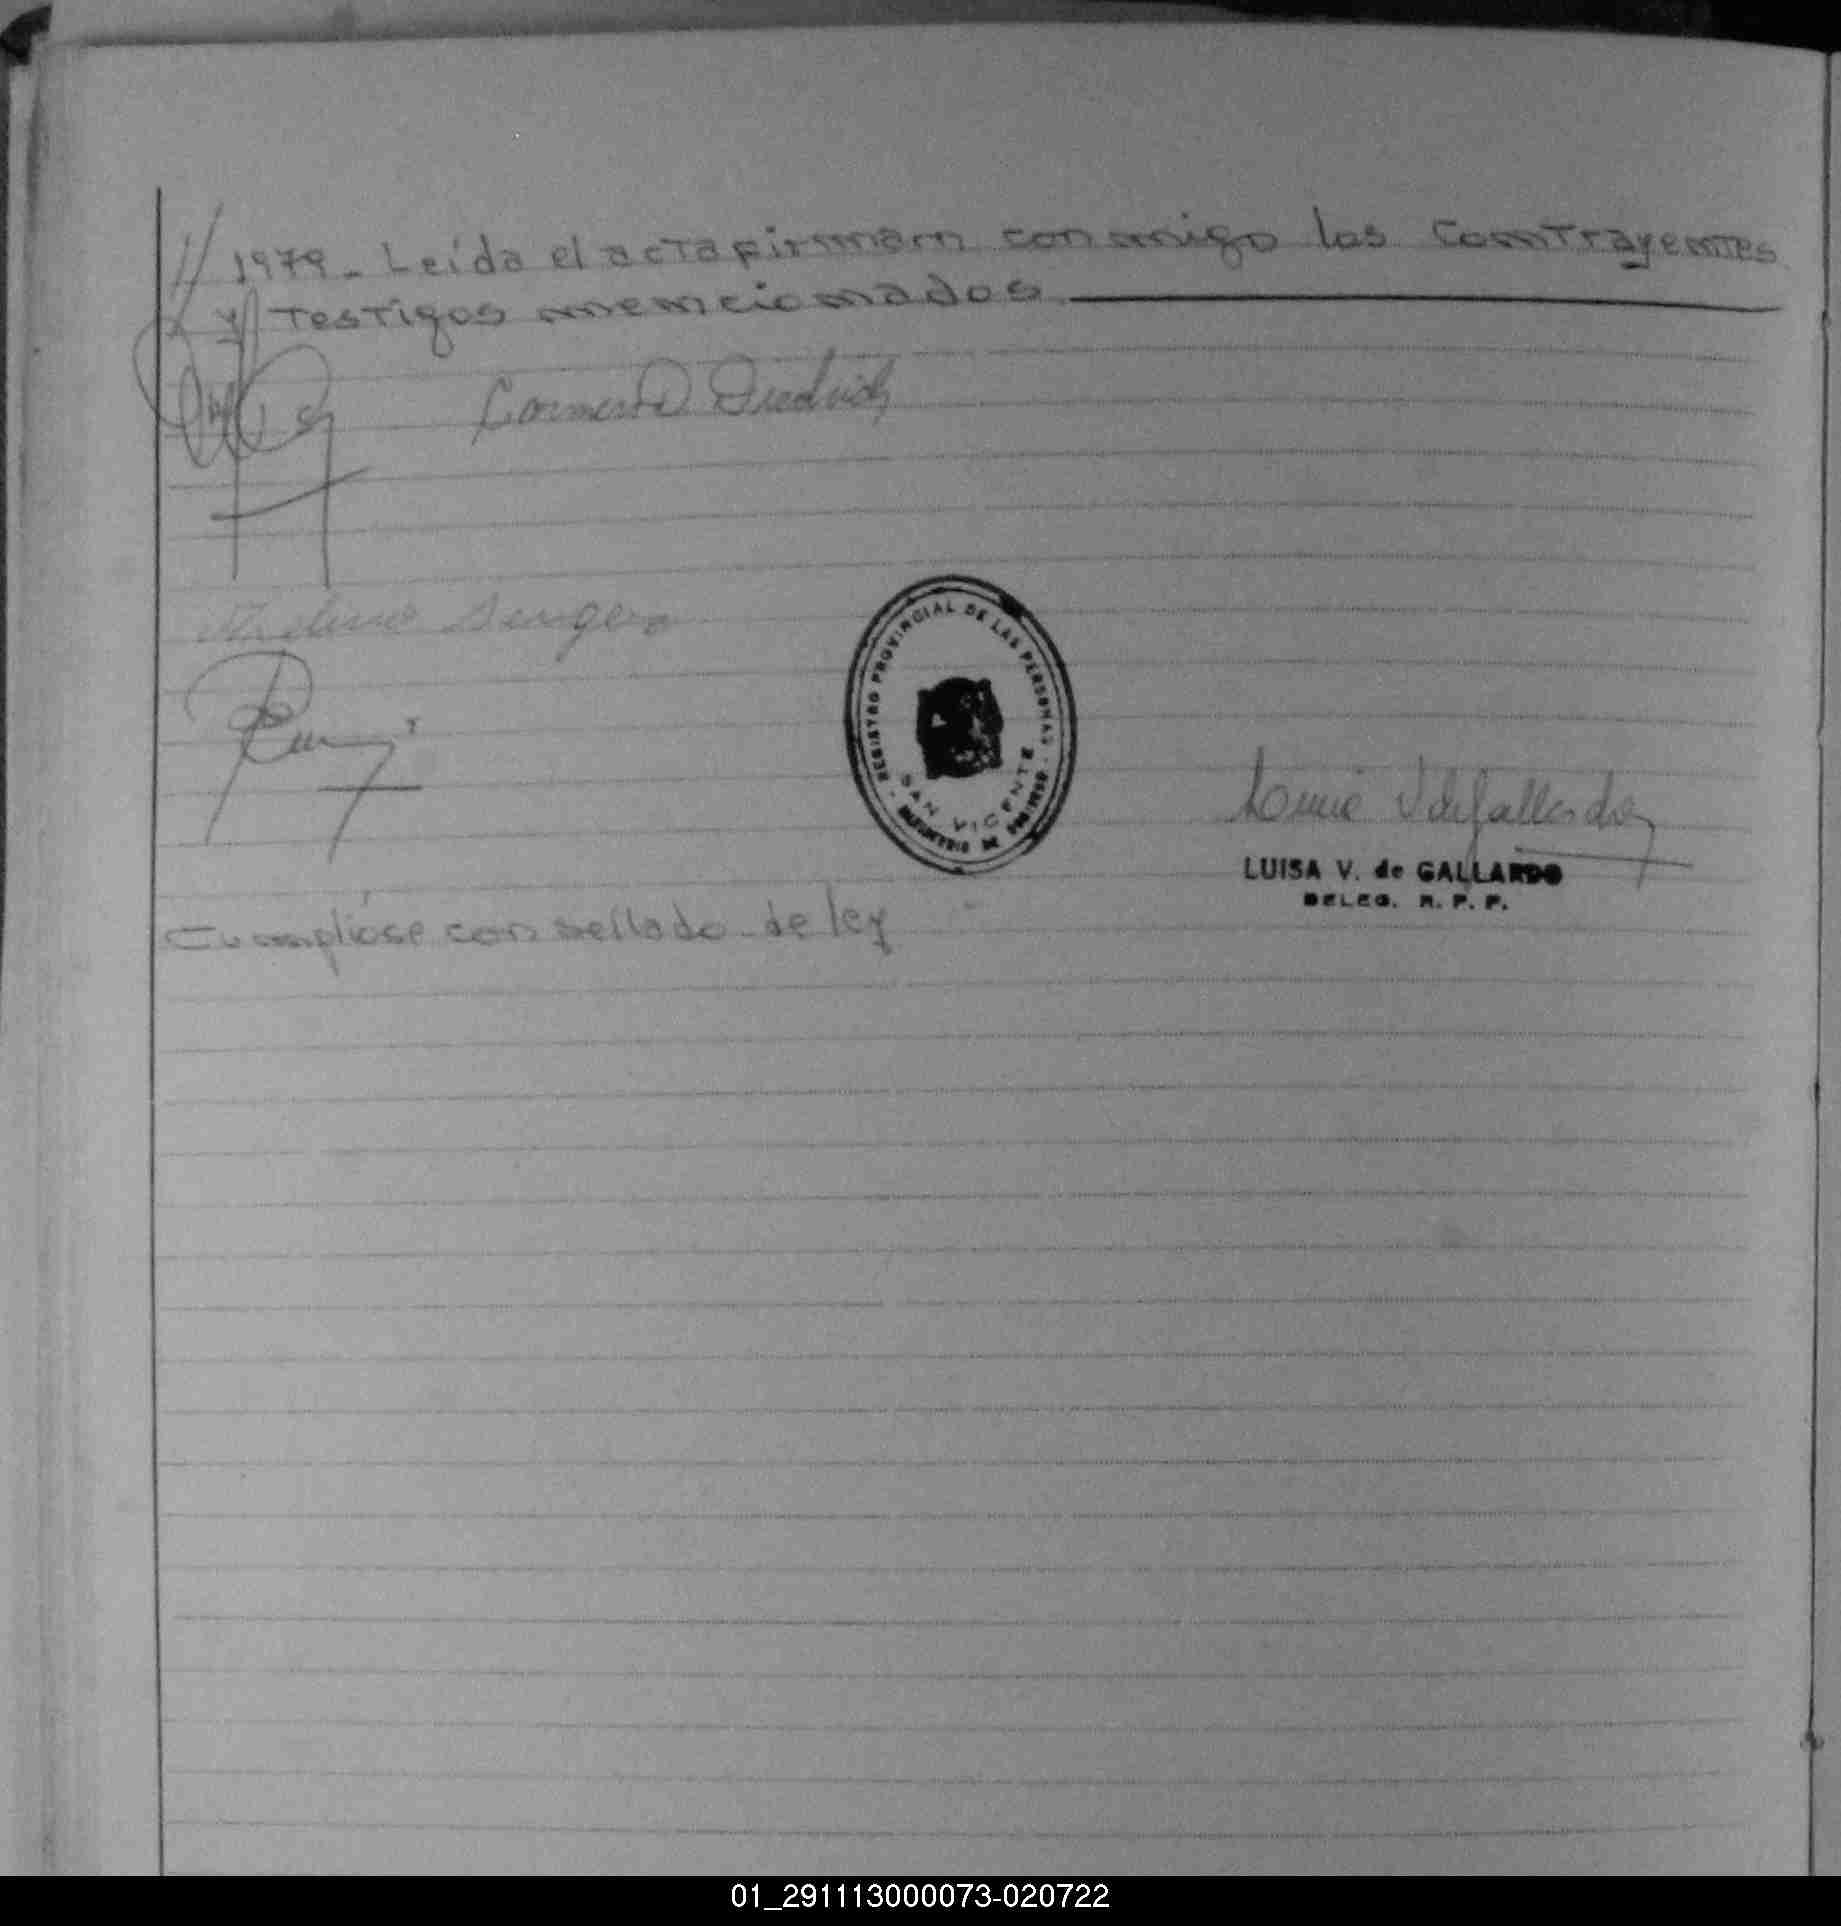 // 1979_ Leída el acta firman conmigo los contrayentes
y testigos mencionados.
REGISTRO PROVINCIAL DE LAS PERSONAS
SAN VICENTE
MINISTERIO DE GOBIERNO
LUISA V. de GALLARDO
DELEG. R. P. P.
Cumplióse con sellado de ley
01_291113000073-020722